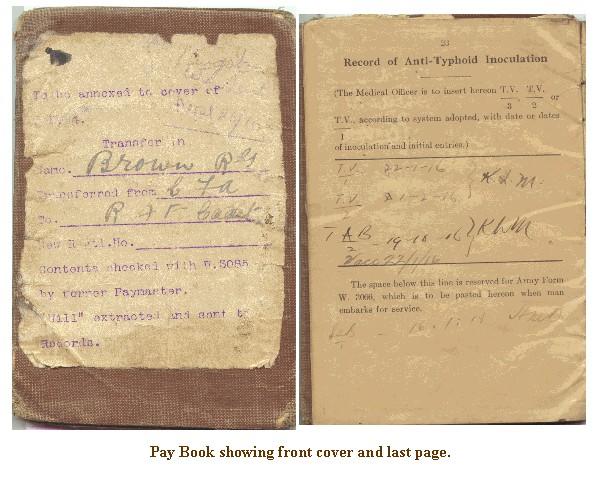 To be annexed to cover of
Transfer in
Name. Brown R
Transferred from
To. R
New Regtl.No.
Contents checked with W.3085
by former Paymaster.
"Will" extracted and sent to
Records.
23
Record of Anti-Typhoid Inoculation
(The Medical Officer is to insert hereon T.V./3, T.V./2 or
T.V./1, according to system adopted, with date or dates
of inoculation and initial entries.)
T.V. 22-1-16
T.V./2 1-2-16 K.L.M.
T A B/2 19-10-16 KLM
Vacc 22/1/16
The space below this line is reserved for Army Form
W. 3066, which is to be pasted hereon when man
embarks for service.
Pay Book showing front cover and last page.